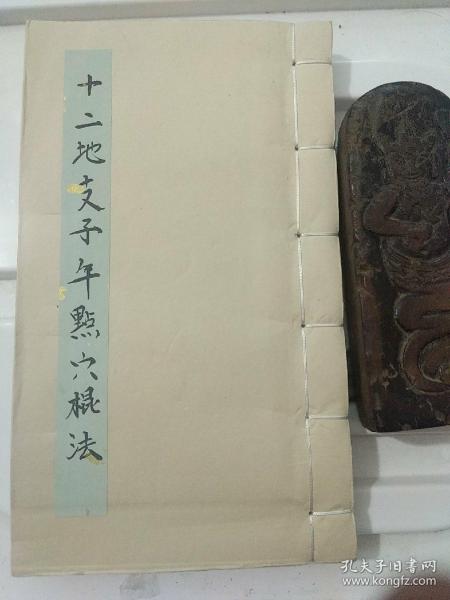 十二地支子午點穴棍法
孔夫子旧书网
www.kongfz.com